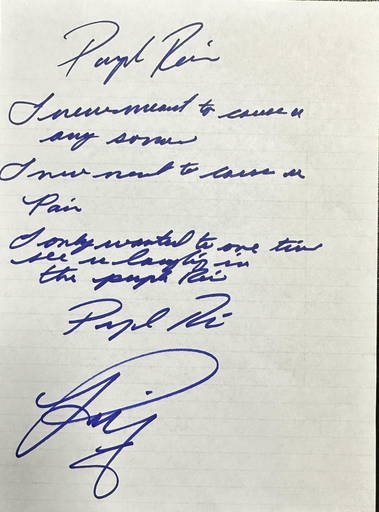 Purple Rain
I never meant to cause u
any sorrow
I never meant to cause u
Pain
I only wanted to one time
see u laughing in
the purple Rain
Purple Rain